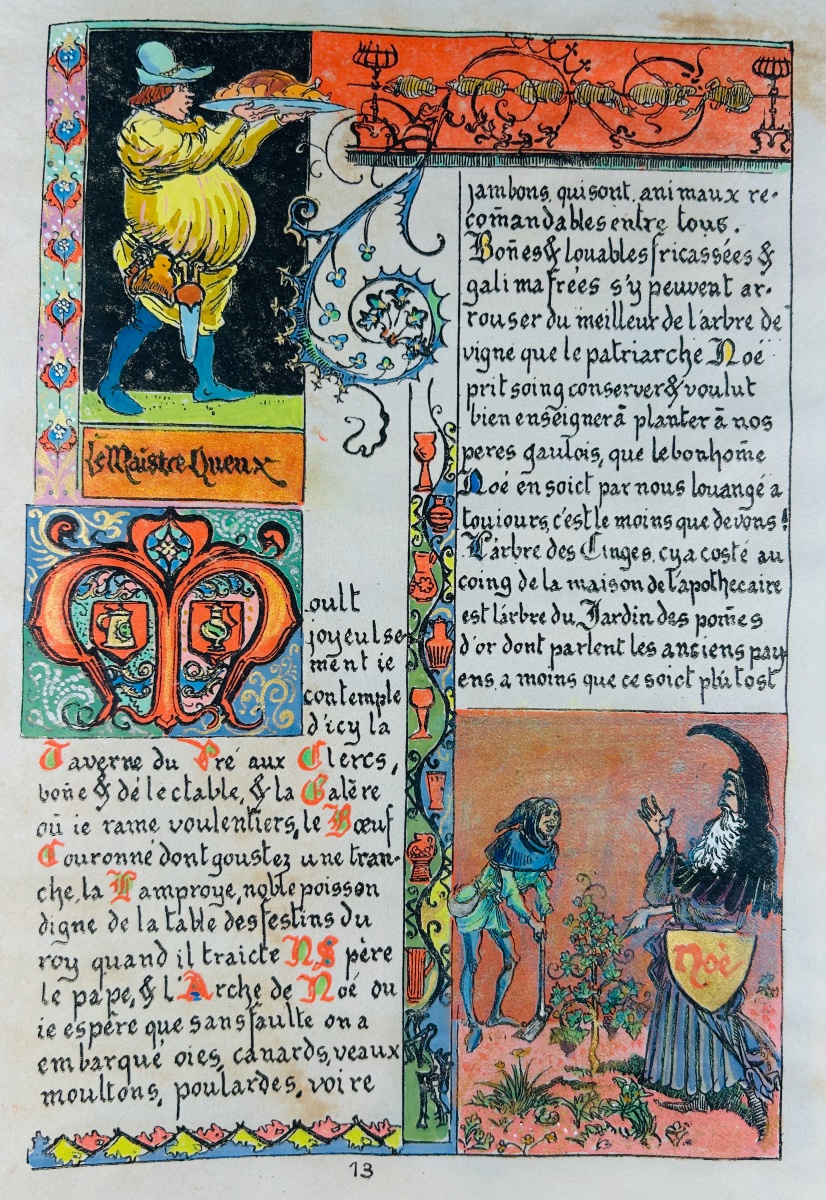 Le Maistre Queux
Moult
joyeulse-
ment ie
contemple
d'icy la
Taverne du Pré aux Clercs,
boñe & délectable, & la Galère
où ie rame voulentiers, le Bœuf
Couronné dont goustez une tran-
che, la Lamproye, noble poisson
digne de la table des festins du
roy quand il traicte N S père
le pape, & l'Arche de Noé ou
ie espère que sans faulte on a
embarqué oies, canards, veaux
moultons, poulardes, voire
jambons, qui sont, animaux re-
cõmandables entre tous.
Boñes & louables fricassées &
galimafrées s'y peuvent ar-
rouser du meilleur de l'arbre de
vigne que le patriarche Noé
prit soing conserver & voulut
bien enseigner à planter à nos
peres gaulois, que le bonhõme
Noé en soict par nous louangé a
toujours, c'est le moins que devons!
L'arbre des Cinges, cy a costé au
coing de la maison de l'apothecaire
est l'arbre du Jardin des põmes
d'or dont parlent les anciens pay-
ens, a moins que ce soict plûtost
Noè
13